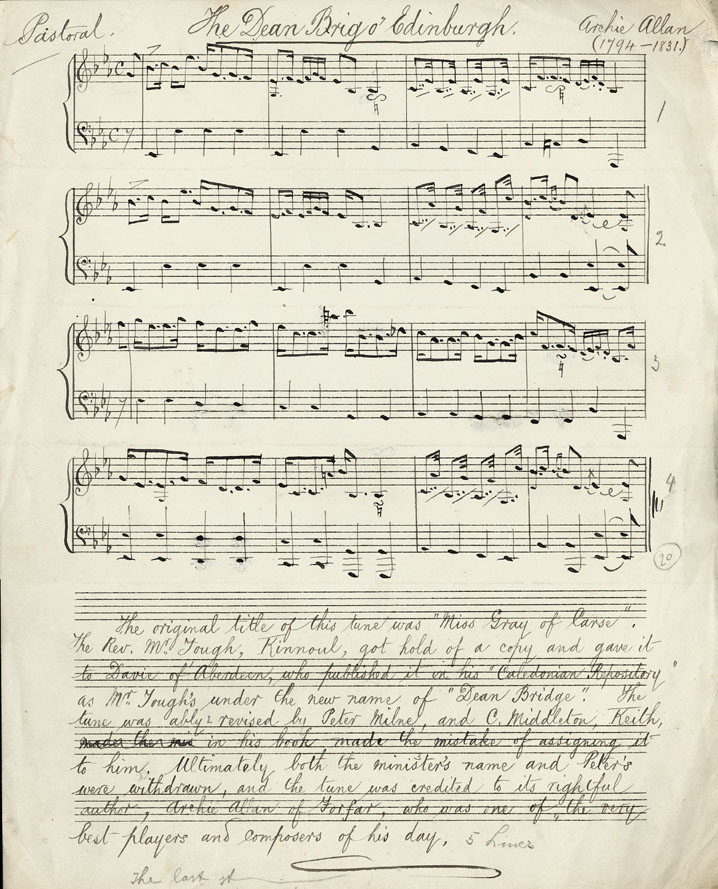 Pastoral.
The Dean Brig o' Edinburgh.
Archie Allan
(1794–1831.)
1
2
3
4
20
The original title of this tune was "Miss Gray of Carse".
The Rev. Mr. Tough, Kinnoul, got hold of a copy and gave it
to Davie of Aberdeen, who published it in his "Caledonian Repository"
as Mr. Tough's under the new name of "Dean Bridge". The
tune was ably revised by Peter Milne, and C. Middleton, Keith,
in his book made the mistake of assigning it
to him. Ultimately both the minister's name and Peter's
were withdrawn, and the tune was credited to its rightful
author, Archie Allan of Forfar, who was one of the very
best players and composers of his day. 5 Lines
The last